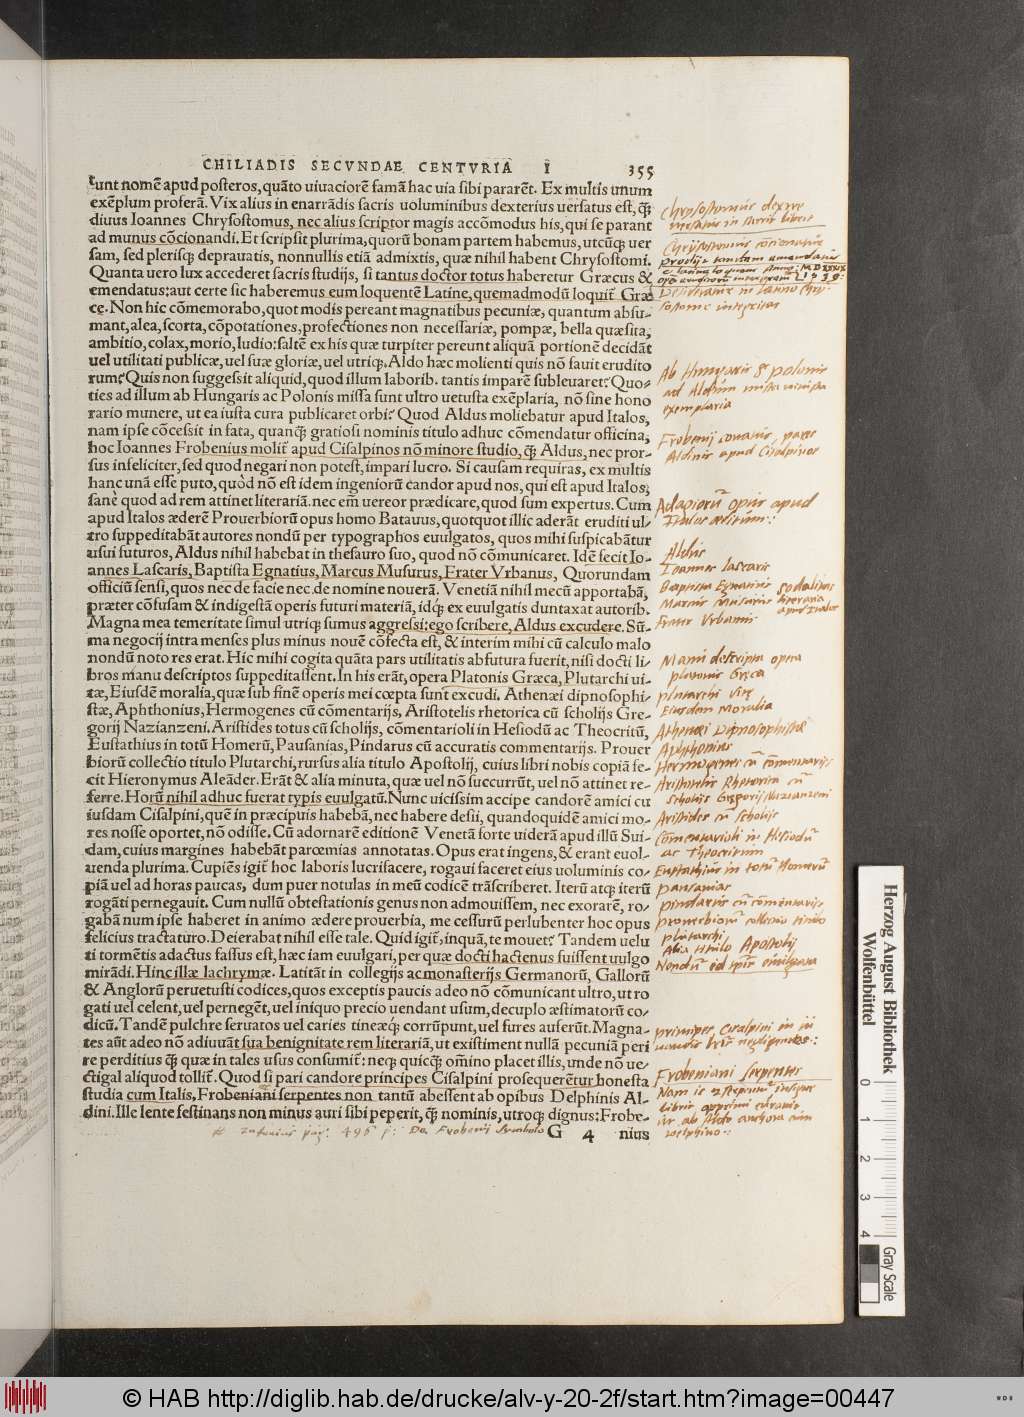 CHILIADIS SECVNDAE CENTVRIA I 355
sunt nomẽ apud posteros, quãto uiuaciorẽ famã hac uia sibi pararẽt. Ex multis unum
exẽplum proferã. Vix alius in enarrãdis sacris uoluminibus dexterius uersatus est, q̃
diuus Ioannes Chrysostomus, nec alius scriptor magis accõmodus his, qui se parant
ad munus cõcionandi. Et scripsit plurima, quorũ bonam partem habemus, utcũq; uer
sam, sed plerisq; deprauatis, nonnullis etiã admixtis, quæ nihil habent Chrysostomi.
Quanta uero lux accederet sacris studijs, si tantus doctor totus haberetur Græcus &
emendatus: aut certe sic haberemus eum loquentẽ Latine, quemadmodũ loquit̃ Græ
ce. Non hic cõmemorabo, quot modis pereant magnatibus pecuniæ, quantum absu-
mant, alea, scorta, cõpotationes, profectiones non necessariæ, pompæ, bella quæsita,
ambitio, colax, morio, ludio: saltẽ ex his quæ turpiter pereunt aliquã portionẽ decidãt
uel utilitati publicæ, uel suæ gloriæ, uel utriq;. Aldo hæc molienti quis nõ fauit erudito
rum? Quis non suggessit aliquid, quod illum laborib. tantis imparẽ subleuaret? Quo-
ties ad illum ab Hungaris ac Polonis missa sunt ultro uetusta exẽplaria, nõ sine hono
rario munere, ut ea iusta cura publicaret orbi? Quod Aldus moliebatur apud Italos,
nam ipse cõcessit in fata, quanq̃ gratiosi nominis titulo adhuc cõmendatur officina,
hoc Ioannes Frobenius molit̃ apud Cisalpinos nõ minore studio, q̃ Aldus, nec pror-
sus infeliciter, sed quod negari non potest, impari lucro. Si causam requiras, ex multis
hanc unã esse puto, quòd nõ est idem ingeniorũ candor apud nos, qui est apud Italos,
sanè quod ad rem attinet literariã. nec em̃ uereor prædicare, quod sum expertus. Cum
apud Italos æderẽ Prouerbiorũ opus homo Batauus, quotquot illic aderãt eruditi ul-
tro suppeditabãt autores nondũ per typographos euulgatos, quos mihi suspicabãtur
usui futuros, Aldus nihil habebat in thesauro suo, quod nõ cõmunicaret. Idẽ fecit Io-
annes Lascaris, Baptista Egnatius, Marcus Musurus, Frater Vrbanus, Quorundam
officiũ sensi, quos nec de facie nec de nomine nouerã. Venetiã nihil mecũ apportabã,
præter cõfusam & indigestã operis futuri materiã, idq; ex euulgatis duntaxat autorib.
Magna mea temeritate simul utriq; sumus aggressi: ego scribere, Aldus excudere. Sũ-
ma negocij intra menses plus minus nouẽ cõfecta est, & interim mihi cũ calculo malo
nondũ noto res erat. Hic mihi cogita quãta pars utilitatis abfutura fuerit, nisi docti li-
bros manu descriptos suppeditassent. In his erãt, opera Platonis Græca, Plutarchi ui-
tæ, Eiusdẽ moralia, quæ sub finẽ operis mei cœpta sunt excudi. Athenæi dipnosophi-
stæ, Aphthonius, Hermogenes cũ cõmentarijs, Aristotelis rhetorica cũ scholijs Gre-
gorij Nazianzeni. Aristides totus cũ scholijs, cõmentarioli in Hesiodũ ac Theocritũ,
Eustathius in totũ Homerũ, Pausanias, Pindarus cũ accuratis commentarijs. Prouer
biorũ collectio titulo Plutarchi, rursus alia titulo Apostolij, cuius libri nobis copiã fe-
cit Hieronymus Aleãder. Erãt & alia minuta, quæ uel nõ succurrũt, uel nõ attinet re-
ferre. Horũ nihil adhuc fuerat typis euulgatũ. Nunc uicissim accipe candorẽ amici cu
iusdam Cisalpini, quẽ in præcipuis habebã, nec habere desii, quandoquidẽ amici mo-
res nosse oportet, nõ odisse. Cũ adornarẽ editionẽ Venetã forte uiderã apud illũ Sui-
dam, cuius margines habebãt parœmias annotatas. Opus erat ingens, & erant euol-
uenda plurima. Cupiẽs igit̃ hoc laboris lucrifacere, rogaui faceret eius uoluminis co-
piã uel ad horas paucas, dum puer notulas in meũ codicẽ trãscriberet. Iterũ atq; iterũ
rogãti pernegauit. Cum nullũ obtestationis genus non admouissem, nec exorarẽ, ro-
gabã num ipse haberet in animo ædere prouerbia, me cessurũ perlubenter hoc opus
felicius tractaturo. Deierabat nihil esse tale. Quid igit̃, inquã, te mouet? Tandem uelu
ti tormẽtis adactus fassus est, hæc iam euulgari, per quæ docti hactenus fuissent uulgo
mirãdi. Hinc illæ lachrymæ. Latitãt in collegijs ac monasterijs Germanorũ, Gallorũ
& Anglorũ peruetusti codices, quos exceptis paucis adeo nõ cõmunicant ultro, ut ro
gati uel celent, uel pernegẽt, uel iniquo precio uendant usum, decuplo æstimatorũ co-
dicũ. Tandẽ pulchre seruatos uel caries tineæq; corrũpunt, uel fures auferũt. Magna-
tes aũt adeo nõ adiuuãt sua benignitate rem literariã, ut existiment nullã pecuniã peri
re perditius q̃ quæ in tales usus consumit̃: neq; quicq̃ om̃ino placet illis, unde nõ ue-
ctigal aliquod tollit̃. Quod si pari candore principes Cisalpini prosequerẽtur honesta
studia cum Italis, Frobeniani serpentes non tantũ abessent ab opibus Delphinis Al-
dini. Ille lente festinans non minus auri sibi peperit, q̃ nominis, utroq; dignus: Frobe-
G 4 nius
Chrysostomus dextre
uersatus in sacris libris
Chrysostomus
Ab Hungaris & polonis
ad Aldum missa
exemplaria
Frobenij conatus
Aldinis apud Cisalpinos
Adagiorũ opus apud
Italos
Aldus
Ioannes Lascaris
Baptista Egnatius
Marcus Musurus
Frater Vrbanus
Manu descripta opera
platonis Gręca
plutarchi vitę
Eiusdem Moralia
Athenęi Dipnosophistę
Aphthonius
Hermogenes cũ cõmentarijs
Aristotelis Rhetorica cũ
scholijs Gregorij Nazianzeni
Aristides cũ scholijs
Cõmentarioli in Hesiodũ
ac Theocritum
Eustathius in totũ Homerũ
pausanias
pindarus cũ cõmentarijs
prouerbiorũ collectio titulo
plutarchi
Alia titulo Apostolij
principes Cisalpini
Frobeniani serpentes
De Frobenij Symbolo
Herzog August Bibliothek
Wolfenbüttel
0 1 2 3 4
Gray Scale
© HAB http://diglib.hab.de/drucke/alv-y-20-2f/start.htm?image=00447